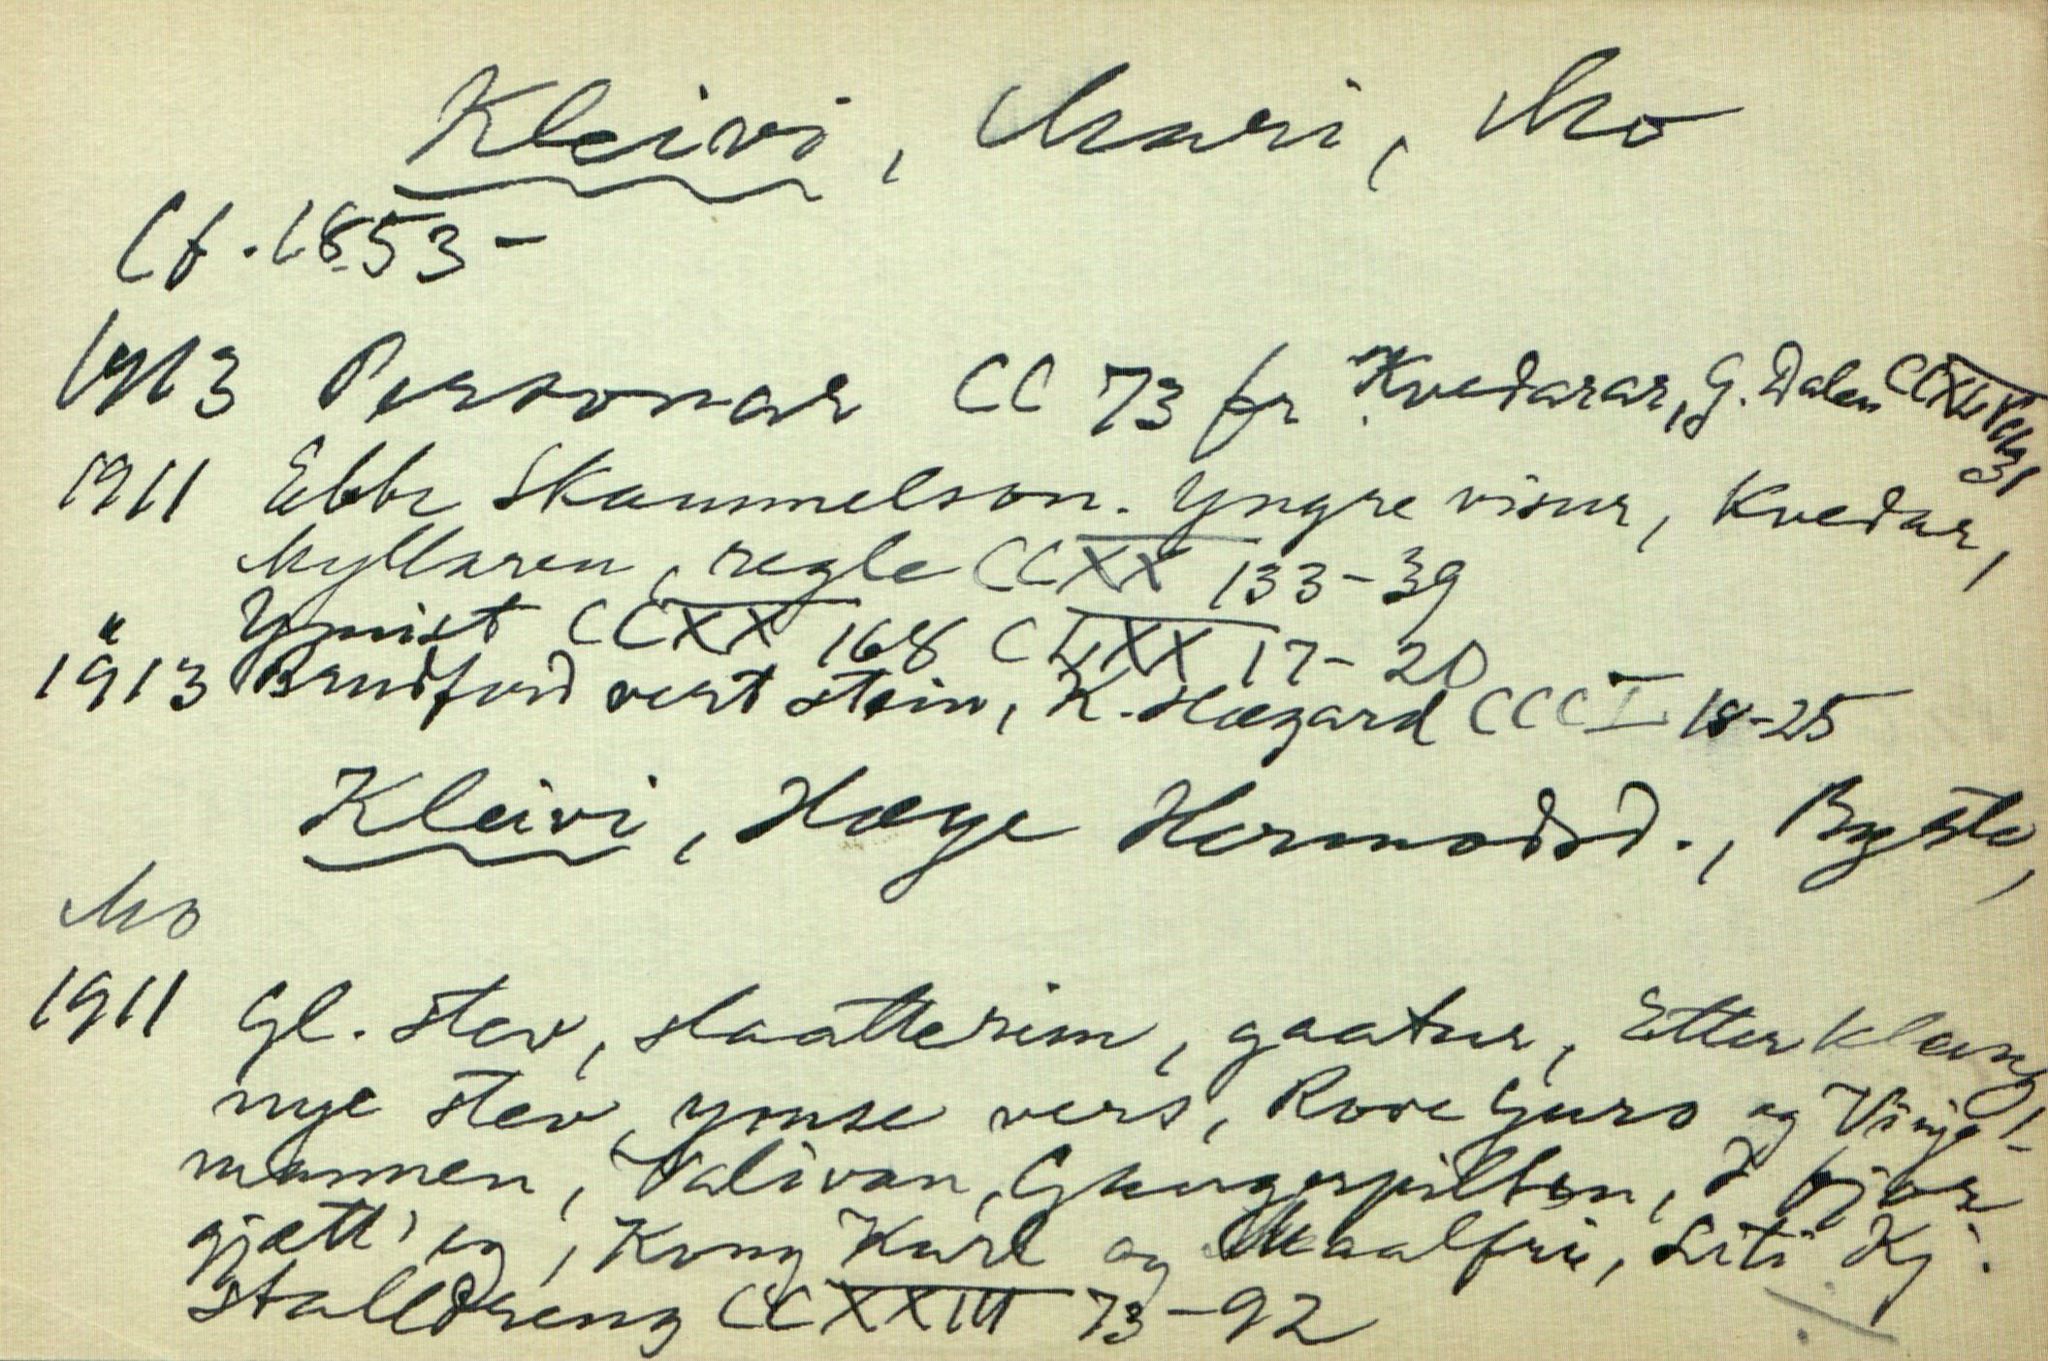 Kleivi, Mari, Mo
Cf. 1853-
1913 Personar CC 73 fr. Kvedarar, G. Dalen
1911 Ebbe Skammelson. Yngre visur, Kvedar,
Myllaren, regle CCXX 133-39
" Ymist CCXX 168 CLXX 17-20
1913 Brudferd vert stein, K. Hægard CCCI 18-25
Kleivi, Hæge Hermodsd., Bystø,
Mo
1911 Gl. stev, slaatterim, gaatur, Etterklang
nye stev, ymse vers, Rove Guro og Vinje-
mannen, Valivan, Gangerpilten, I fjor
gjætt' eg, Kong Karl og Maalfrie, Liti Kj.
stalldreng CCXXIII 73-92